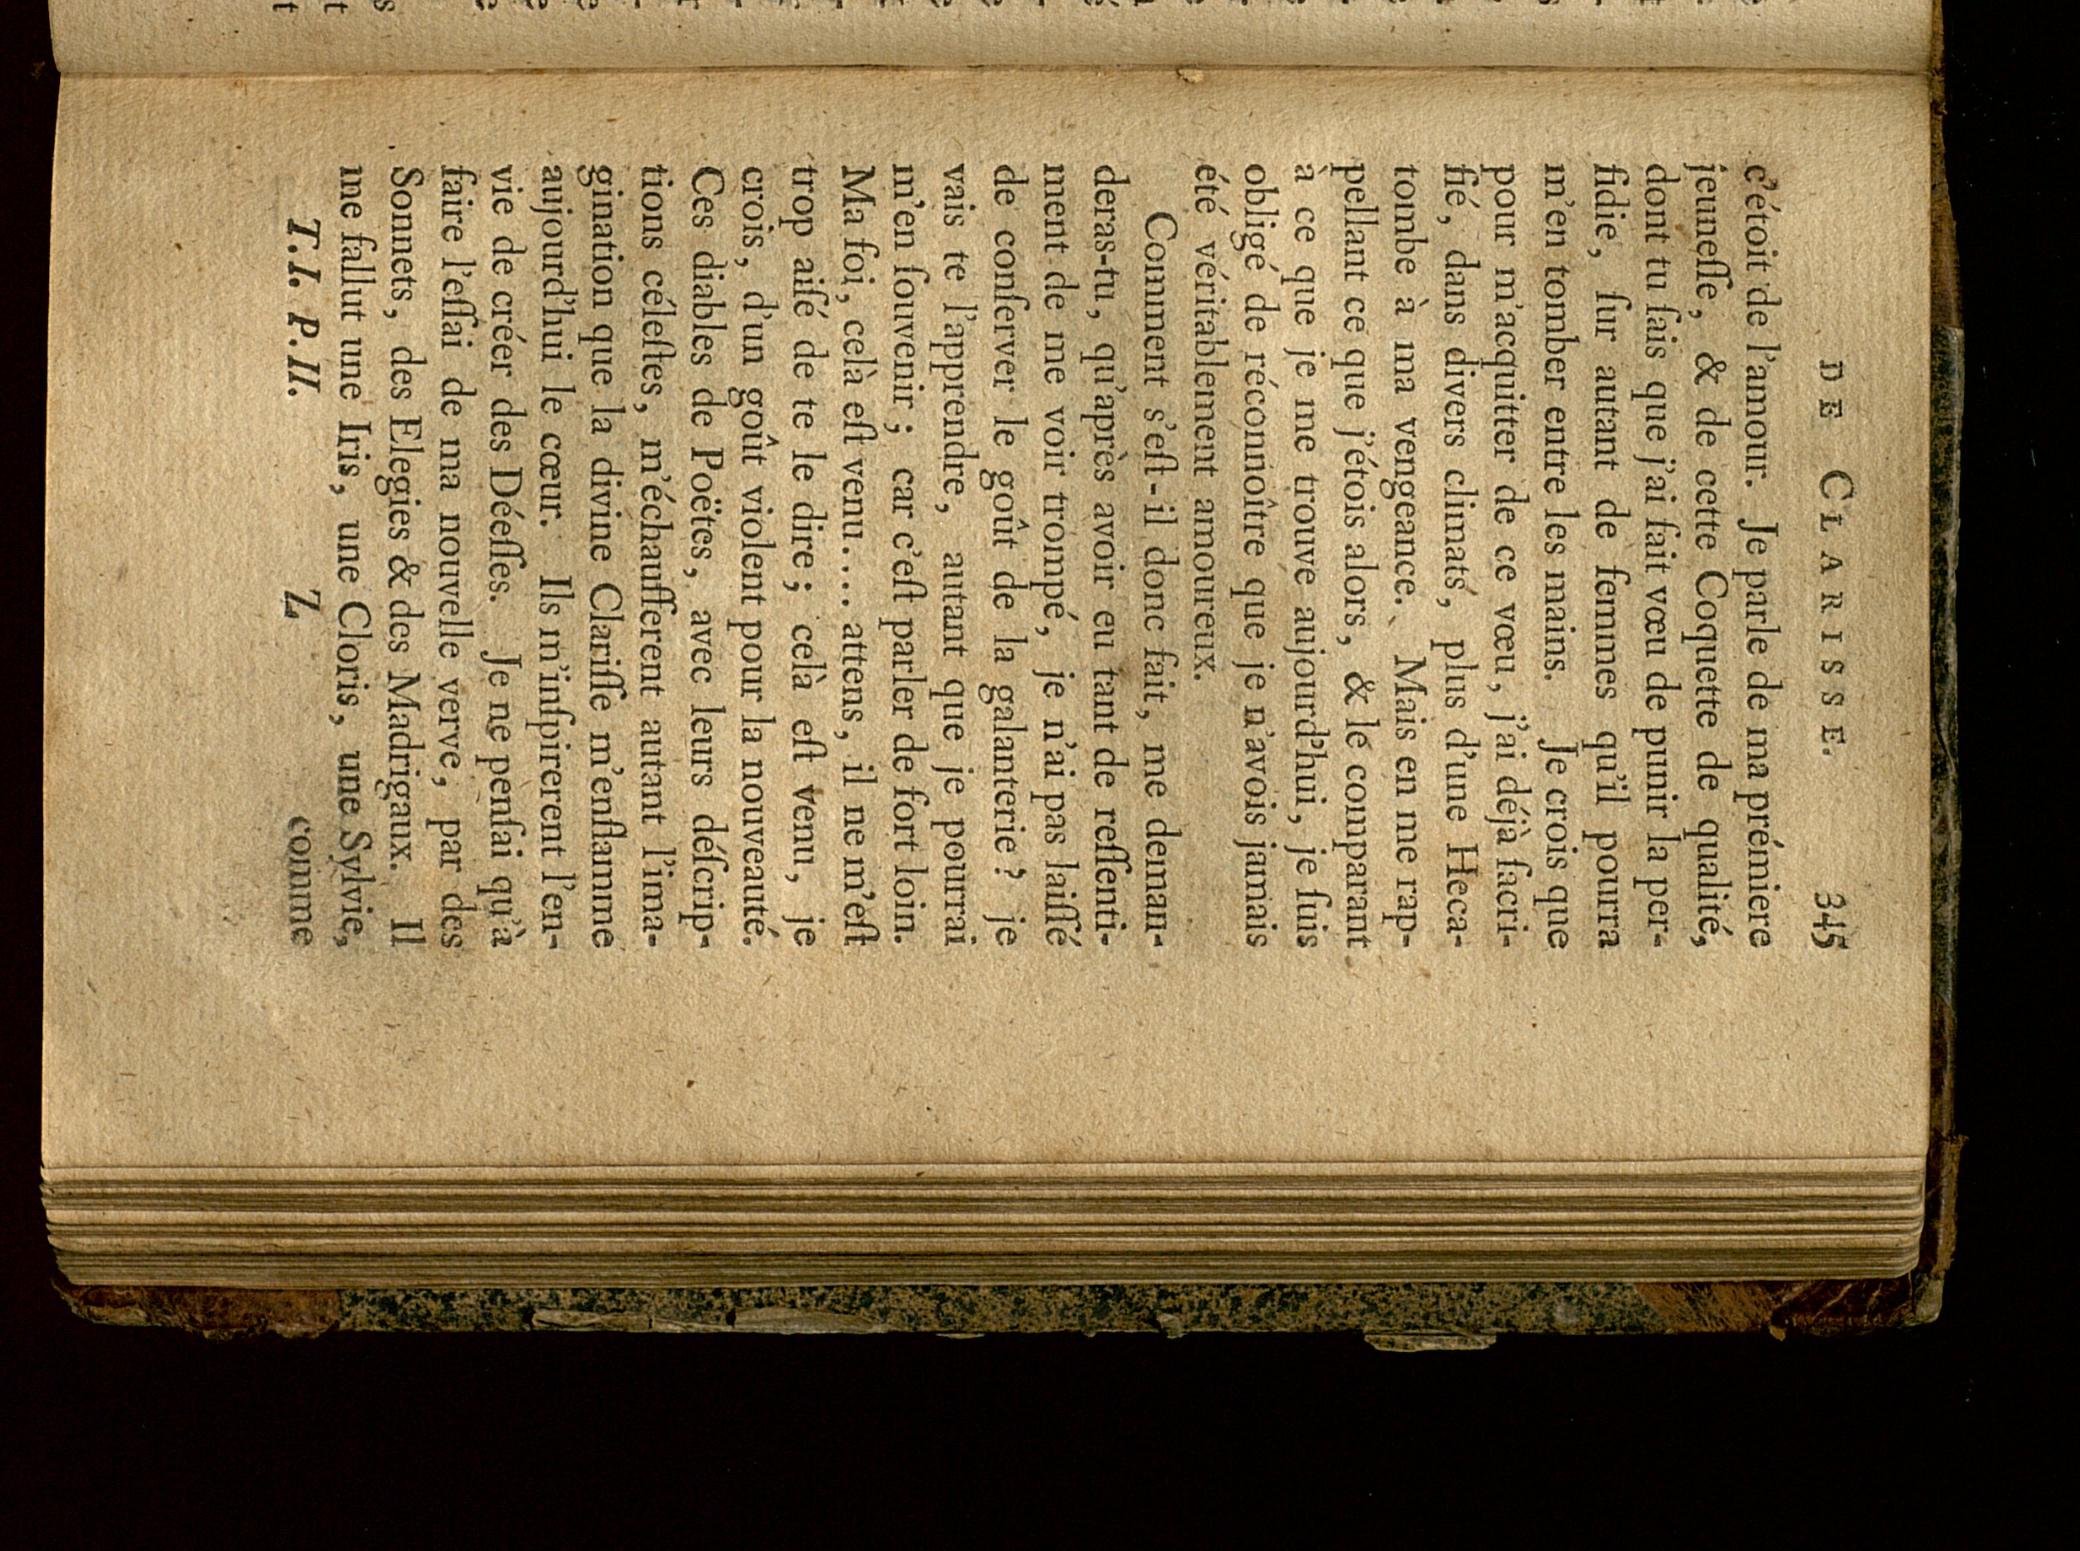 DE CLARISSE. 345
c'étoit de l'amour. Je parle de ma prémiere
jeuneſſe, & de cette Coquette de qualité,
dont tu ſais que j'ai fait vœu de punir la per-
fidie, ſur autant de femmes qu'il pourra
m'en tomber entre les mains. Je crois que
pour m'acquitter de ce vœu, j'ai déjà ſacri-
fié, dans divers climats, plus d'une Heca-
tombe à ma vengeance. Mais en me rap-
pellant ce que j'étois alors, & le comparant
à ce que je me trouve aujourd'hui, je ſuis
obligé de réconnoître que je n'avois jamais
été véritablement amoureux.
Comment s'eſt-il donc fait, me deman-
deras-tu, qu'après avoir eu tant de reſſenti-
ment de me voir trompé, je n'ai pas laiſſé
de conſerver le goût de la galanterie? je
vais te l'apprendre, autant que je pourrai
m'en ſouvenir; car c'eſt parler de fort loin.
Ma foi, celà eſt venu.... attens, il ne m'eſt
trop aiſé de te le dire; celà eſt venu, je
crois, d'un goût violent pour la nouveauté.
Ces diables de Poëtes, avec leurs déſcrip-
tions céleſtes, m'échaufferent autant l'ima-
gination que la divine Clariſſe m'enflamme
aujourd'hui le cœur. Ils m'inſpirerent l'en-
vie de créer des Déeſſes. Je ne penſai qu'à
faire l'eſſai de ma nouvelle verve, par des
Sonnets, des Elegies & des Madrigaux. Il
me fallut une Iris, une Cloris, une Sylvie,
T. I. P. II. Z comme